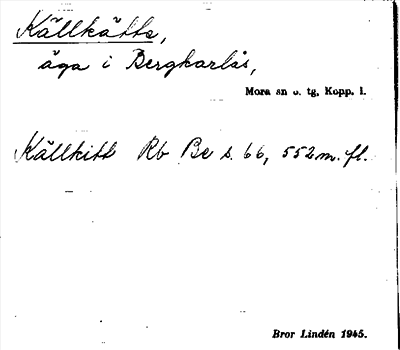 Källkätte,
äga i Bergkarlås,
Mora sn o. tg, Kopp. l.
Källkitt Rb Be s. 66, 552 m. fl.
Bror Lindén 1945.